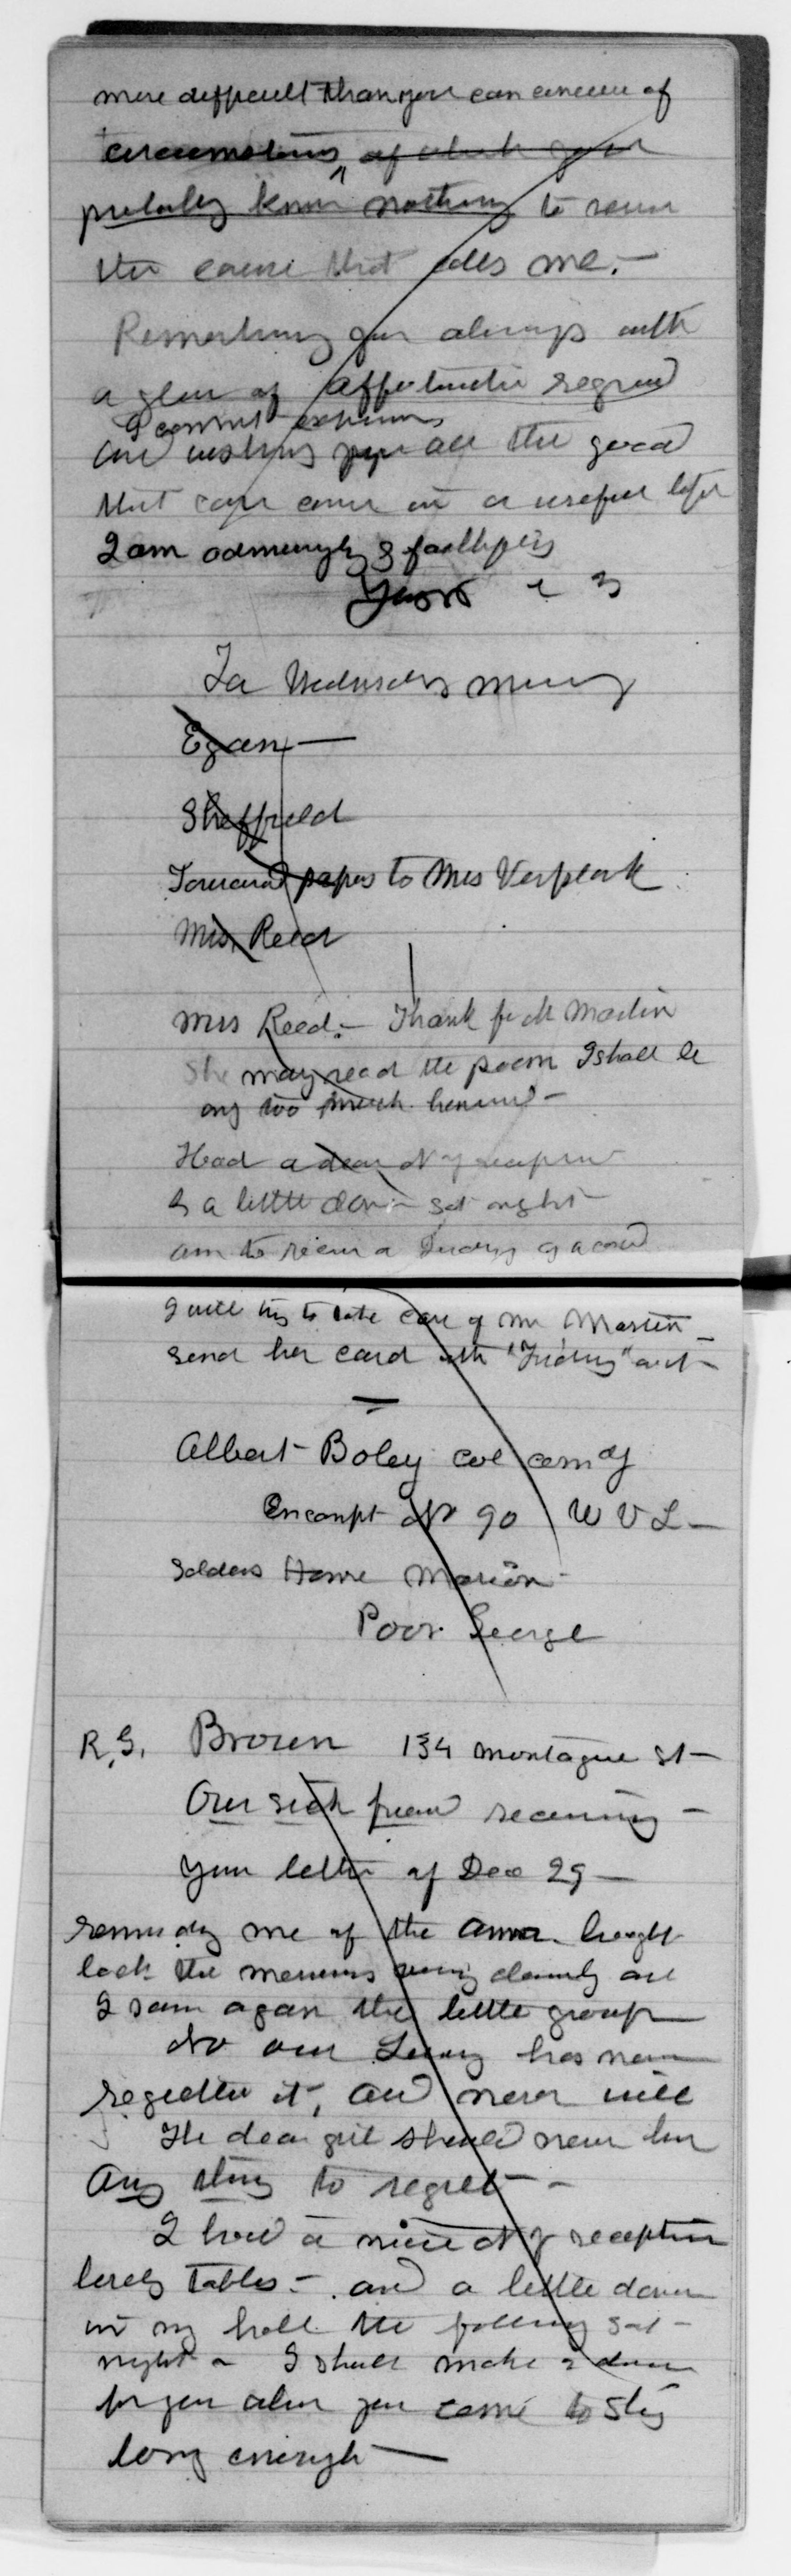 more difficult than you can conceive of
circumstances of which you
probably know nothing to serve
the cause that calls me. —
Remembering you always with
a glow of affectionate regard
I cannot express
and wishing you all the good
that can come in a useful life
I am admiringly & faithfully
Yours
For Wednesday
Egan —
Sheffield
Forward papers to Mrs Verplank
Mrs. Reed
Mrs Reed. — Thank for Mr Martin
She may read the poem I shall be
only too much honored —
Had a dear N Y reception
& a little dance Sat night —
am to receive a
I will try to take care of Mr Martin —
send her card with "Tuesday" out —
Albert Boley col comdg
Encampt No 90 W V L —
Soldiers Home Marion —
Poor George
R. G. Brown 134 Montague St —
Our friend receiving —
Your letter of Dec 29 —
reminding me of the brought
back the memories
I saw again the little group —
No our has never
regretted it, and never will
The dear girl should never have
any thing to regret —
I had a nice N Y reception
lovely tables — and a little dance
in my hall the following Sat —
night — I shall make a dance
for you when you come to stay
long enough —